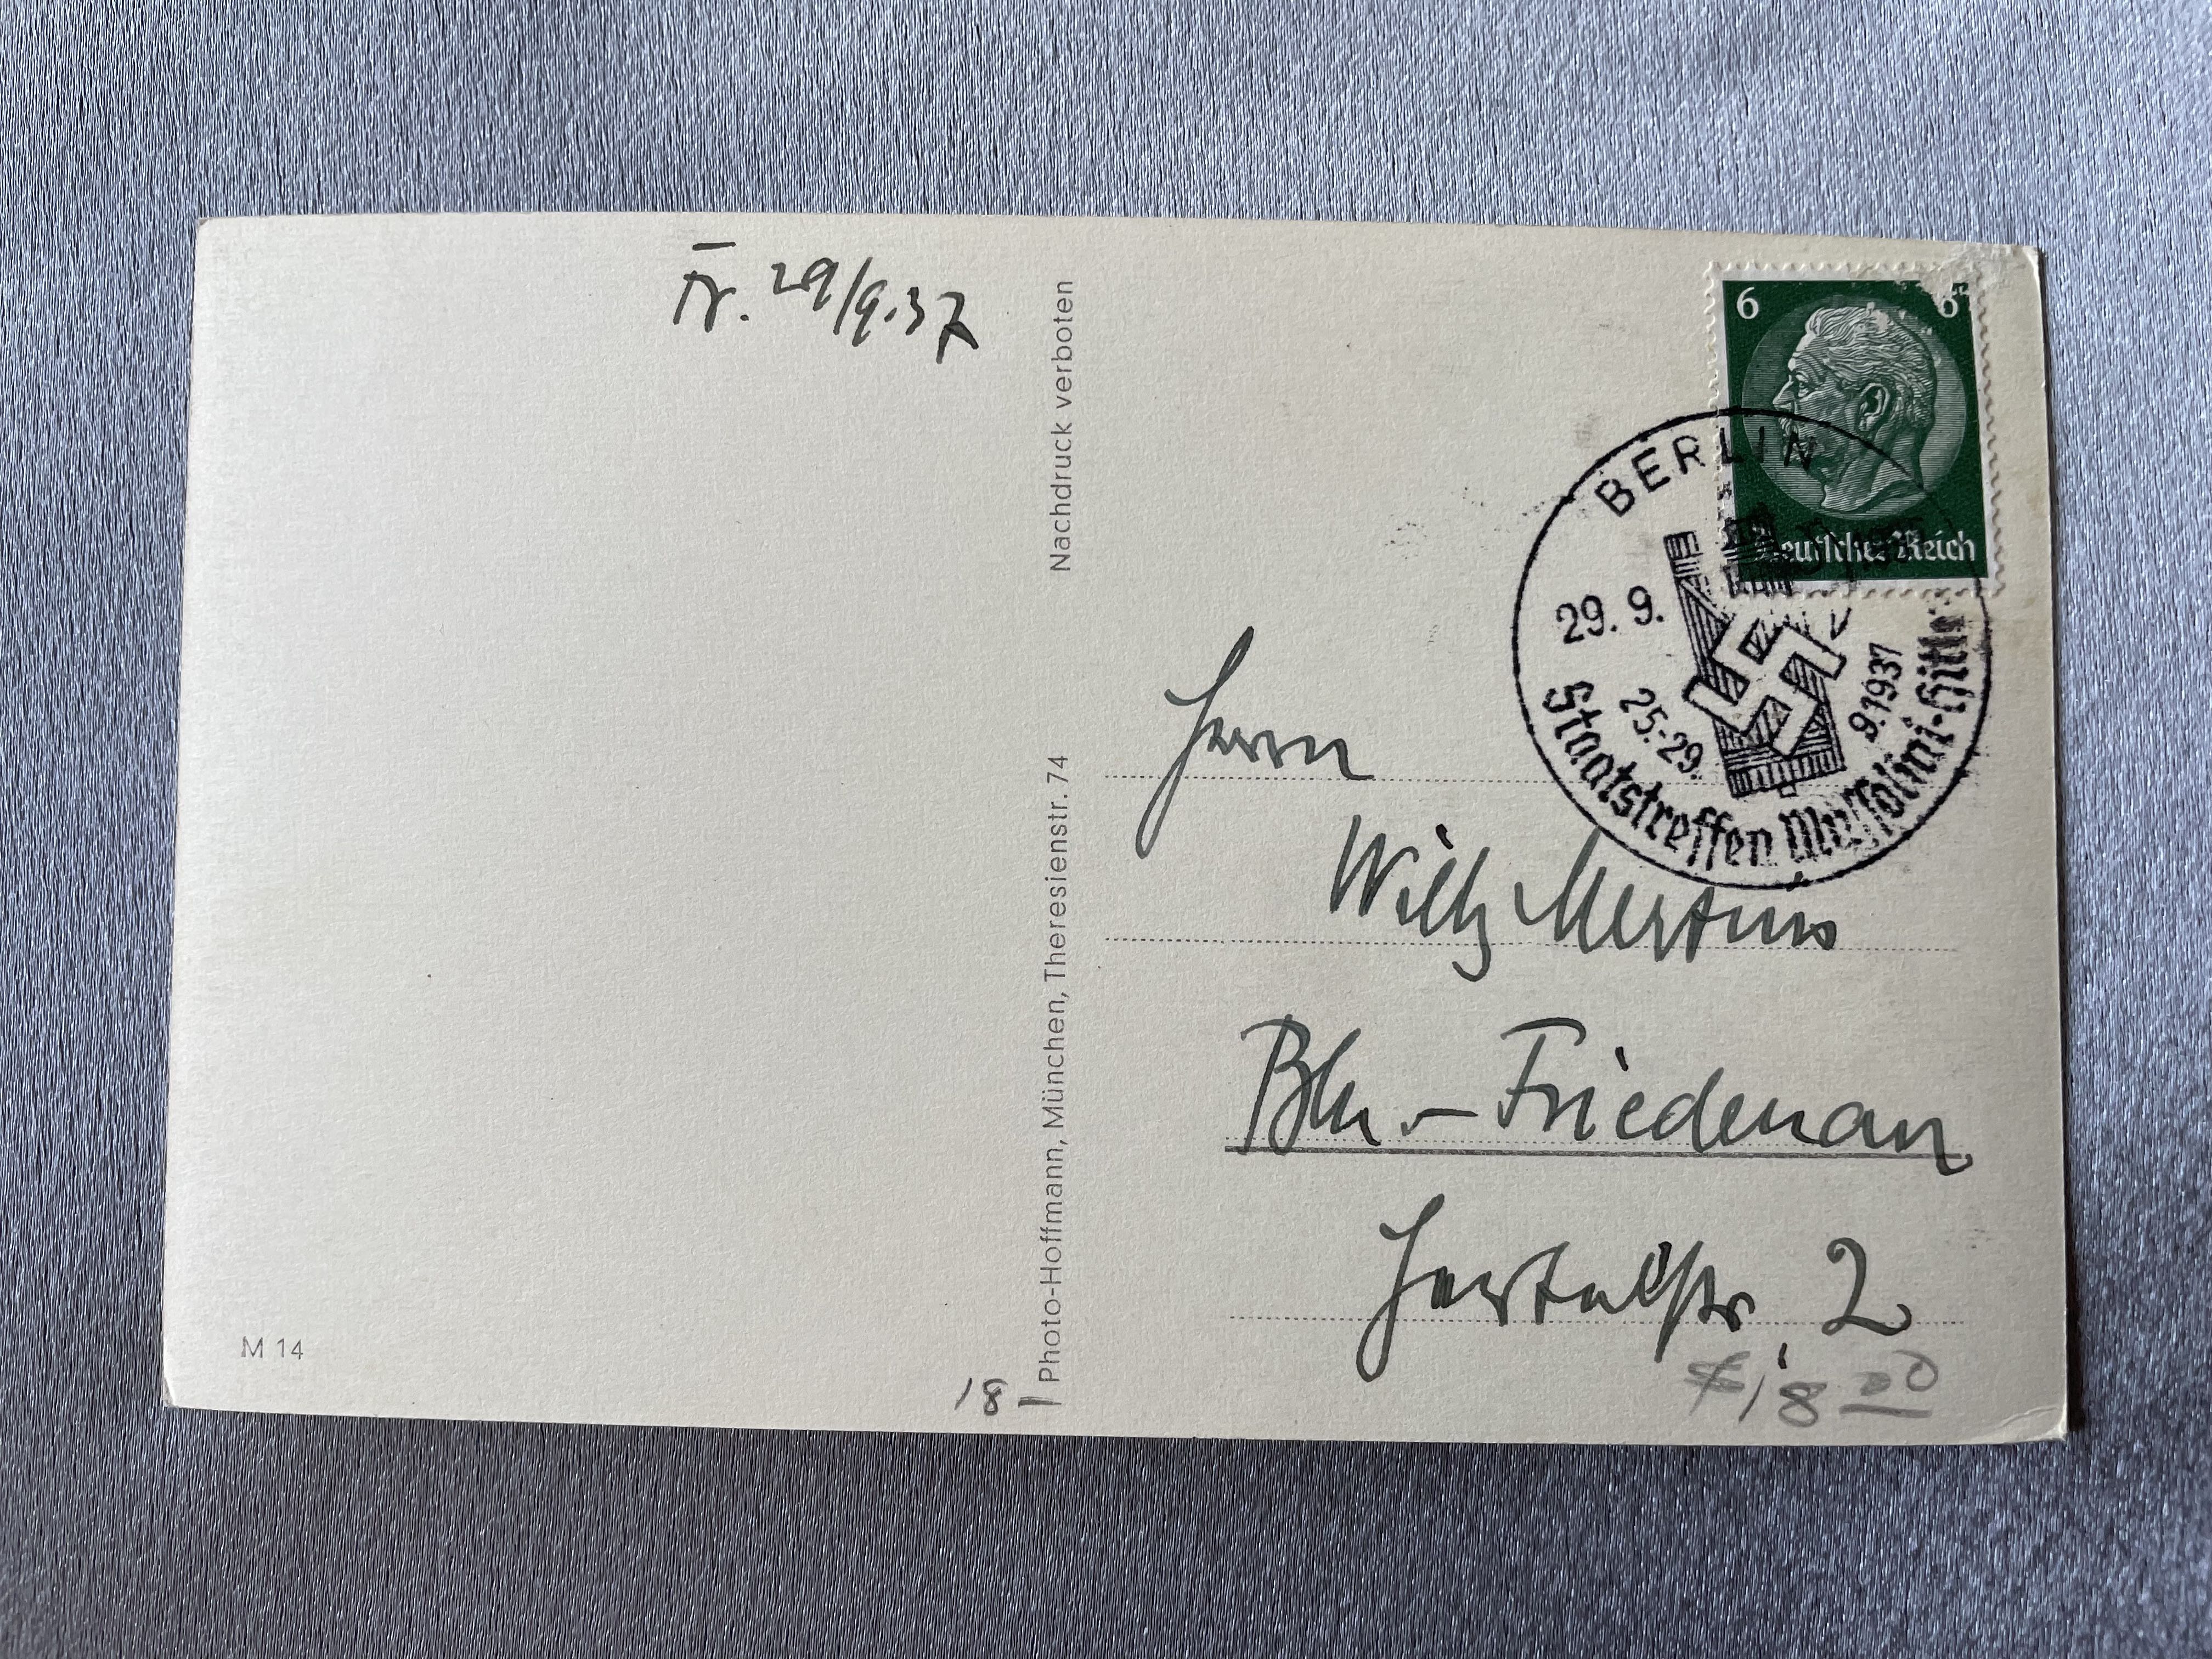 29/9.37
Nachdruck verboten
Photo-Hoffmann, München, Theresienstr. 74
M 14
18
6 6
Deutsches Reich
BERLIN
29. 9.
25.-29. 9.1937
Staatstreffen Mussolini-Hitler
Herrn
Willy Mertins
Bln.-Friedenau
Hertelstr. 2
18 00